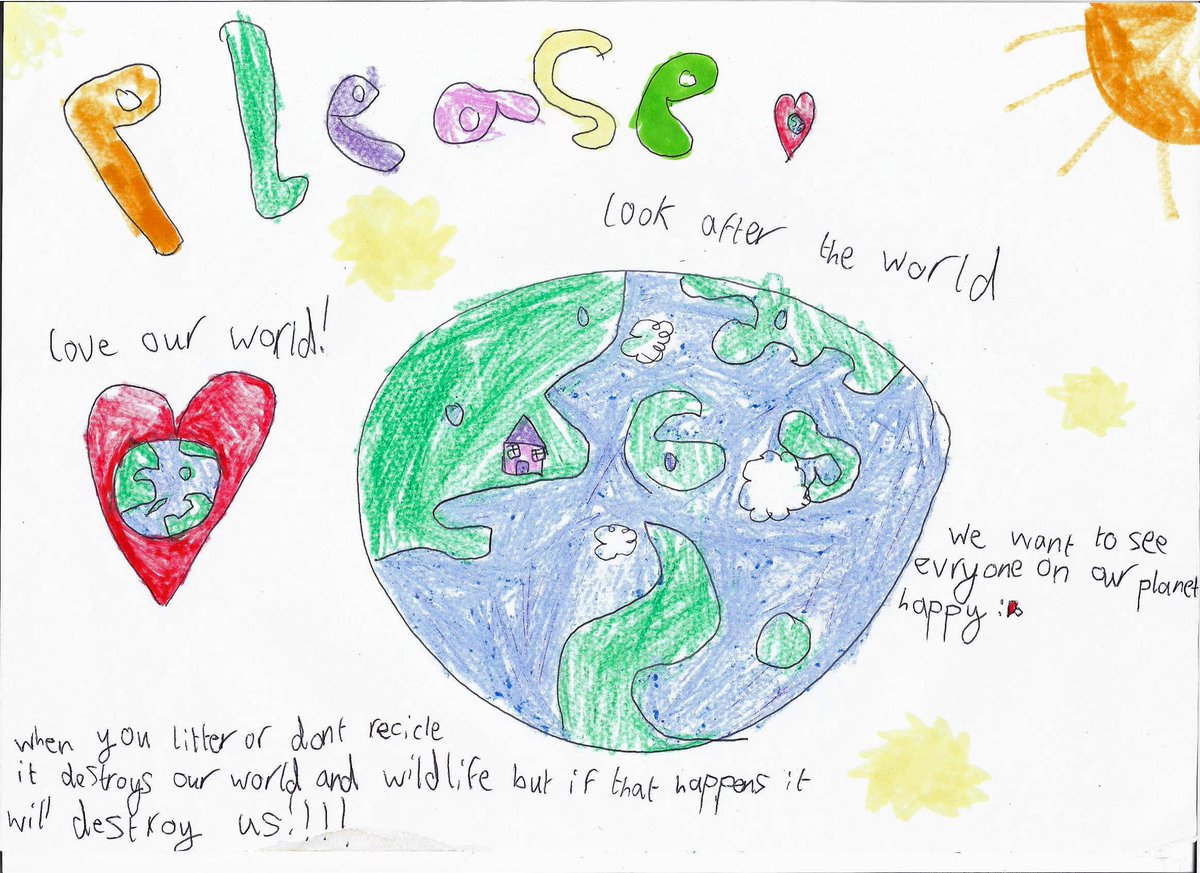 Please
look after the world
love our world!
we want to see
evryone on our planet
happy :)
when you litter or dont recicle
it destroys our world and wildlife but if that happens it
will destroy us!!!!